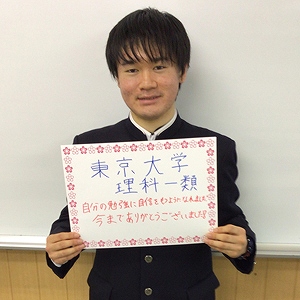 東京大学
理科一類
自分の勉強に自信をもてるようになれました
今までありがとうございました!